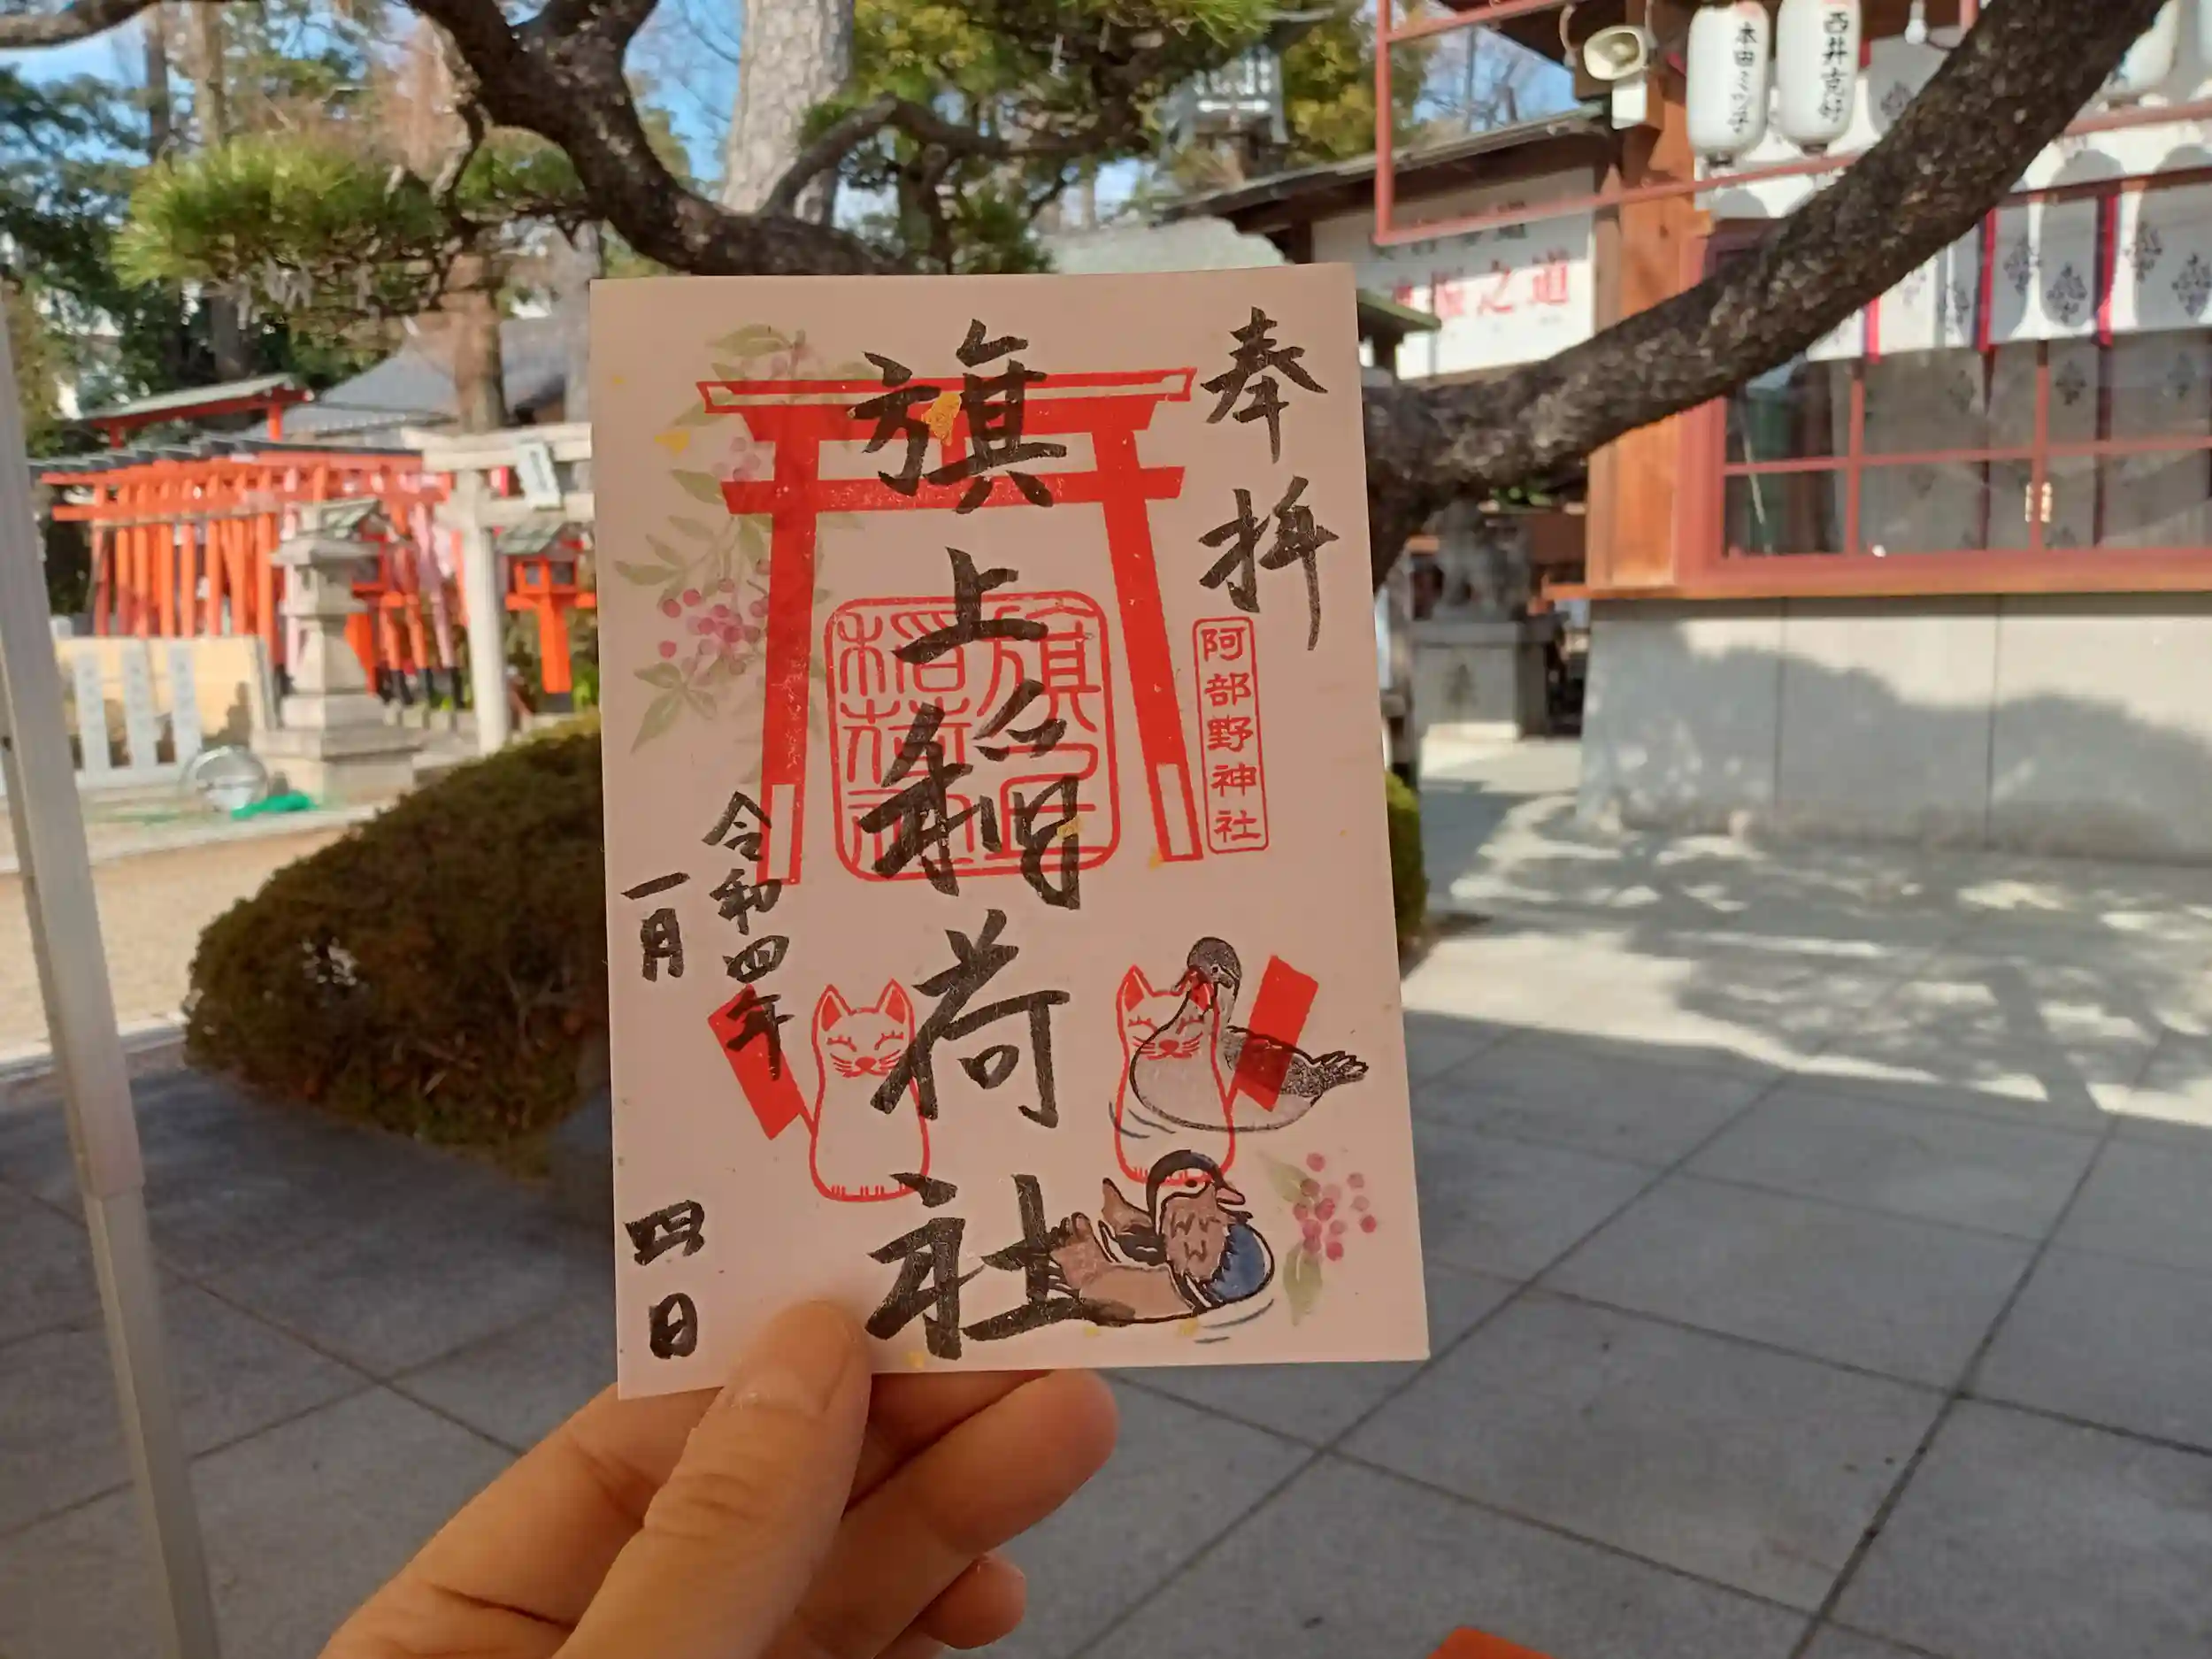 奉拝
阿部野神社
旗上稲荷社
旗上
稲荷社
令和四年
一月
四日
本田ミツ子
西井克好
之道